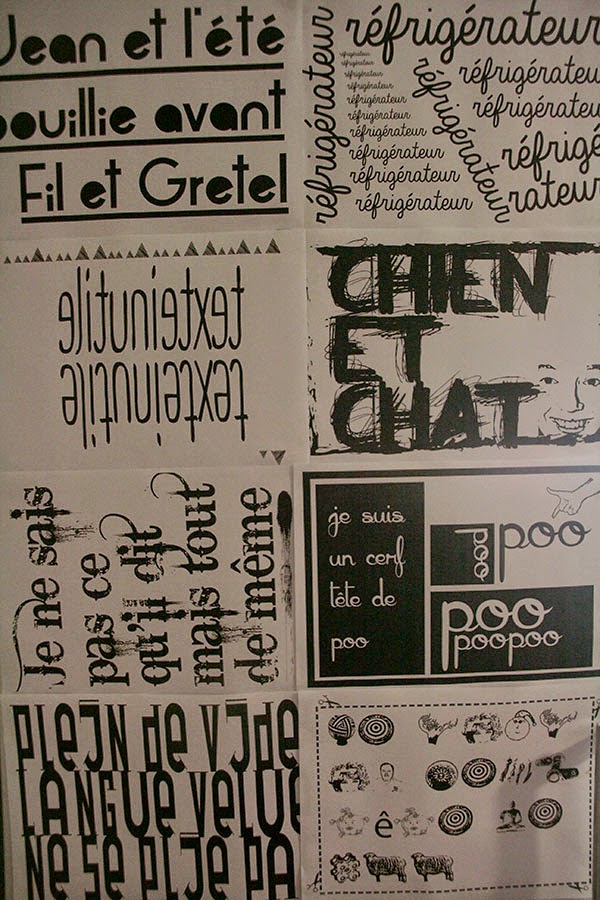 Jean et l'été
bouillie avant
Fil et Gretel
réfrigérateur
réfrigérateur
réfrigérateur
réfrigérateur
réfrigérateur
réfrigérateur
réfrigérateur
réfrigérateur
réfrigérateur
réfrigérateur
réfrigérateur
réfrigérateur
réfrigérateur
réfrigérateu
réfrigérateu
réfrigé
rateur
texteinutile
texteinutile
CHIEN
ET
CHAT
Je ne sais
pas ce
qu'il dit
mais tout
de même
je suis
un cerf
tête de
poo
poo
poo
poo
poopoo
pLeiN de vide
LANGUE veLUe
Ne se pLie pA
ê